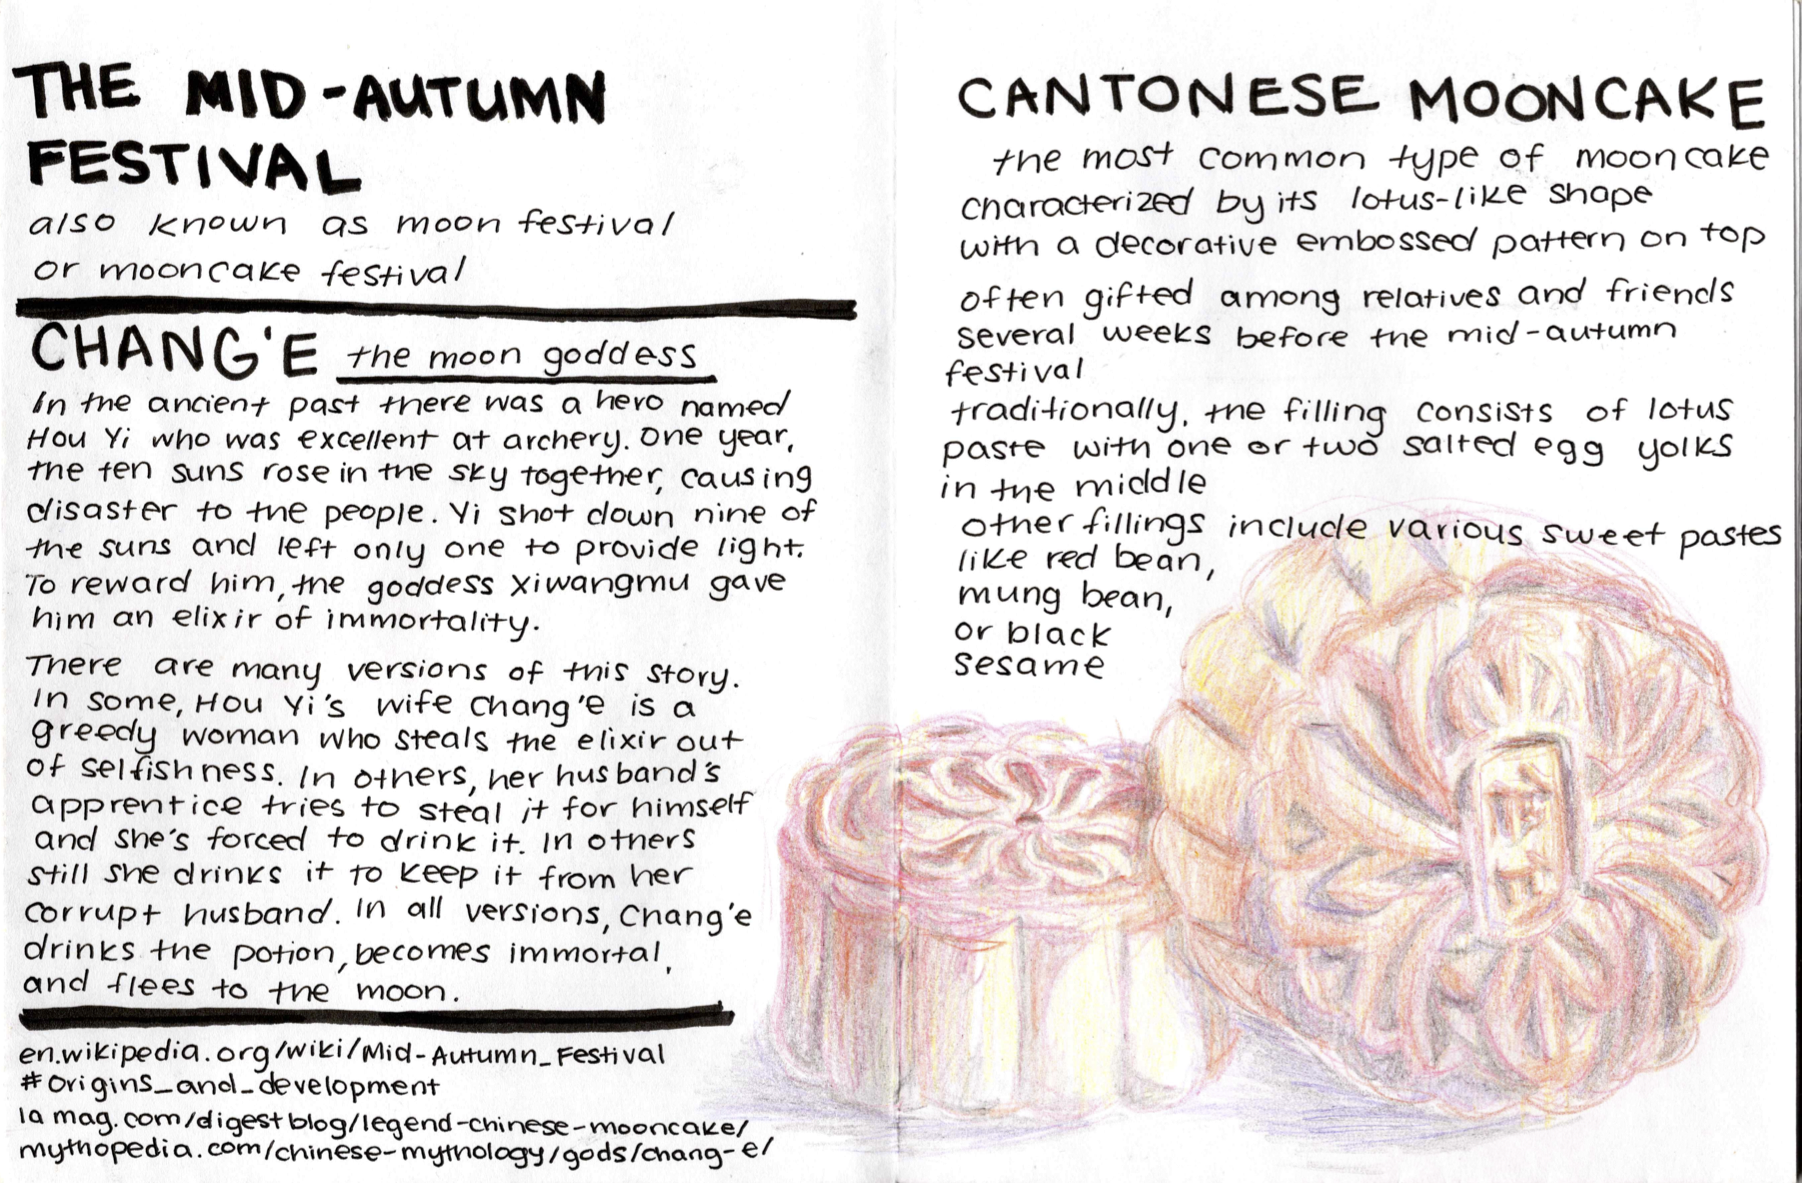 THE MID-AUTUMN
FESTIVAL
also known as moon festival
or mooncake festival
CHANG'E the moon goddess
In the ancient past there was a hero named
Hou Yi who was excellent at archery. One year,
the ten suns rose in the sky together, causing
disaster to the people. Yi shot down nine of
the suns and left only one to provide light.
To reward him, the goddess Xiwangmu gave
him an elixir of immortality.
There are many versions of this story.
In some, Hou Yi's wife Chang'e is a
greedy woman who steals the elixir out
of selfishness. In others, her husband's
apprentice tries to steal it for himself
and she's forced to drink it. In others
still she drinks it to keep it from her
corrupt husband. In all versions, Chang'e
drinks the potion, becomes immortal,
and flees to the moon.
en.wikipedia.org/wiki/Mid-Autumn_Festival
#origins_and_development
lamag.com/digestblog/legend-chinese-mooncake/
mythopedia.com/chinese-mythology/gods/chang-e/
CANTONESE MOONCAKE
the most common type of mooncake
characterized by its lotus-like shape
with a decorative embossed pattern on top
often gifted among relatives and friends
several weeks before the mid-autumn
festival
traditionally, the filling consists of lotus
paste with one or two salted egg yolks
in the middle
other fillings include various sweet pastes
like red bean,
mung bean,
or black
sesame